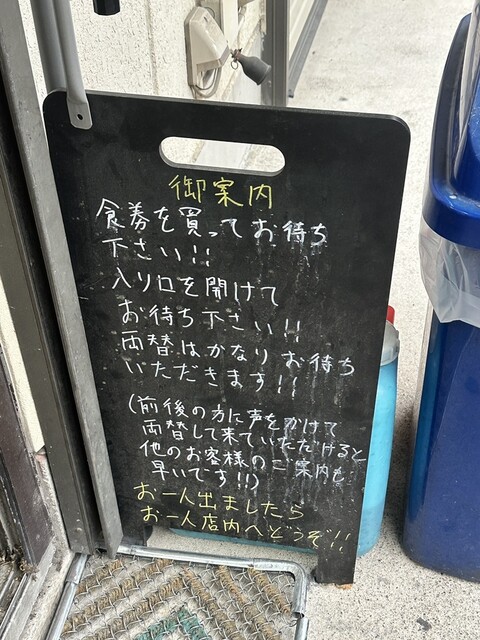 御案内
食券を買ってお待ち
下さい!!
入り口を開けて
お待ち下さい!!
両替はかなりお待ち
いただきます!!
(前後の方に声をかけて
両替して来ていただけると
他のお客様のご案内も
早いです!!)
お一人出ましたら
お一人店内へどうぞ!!